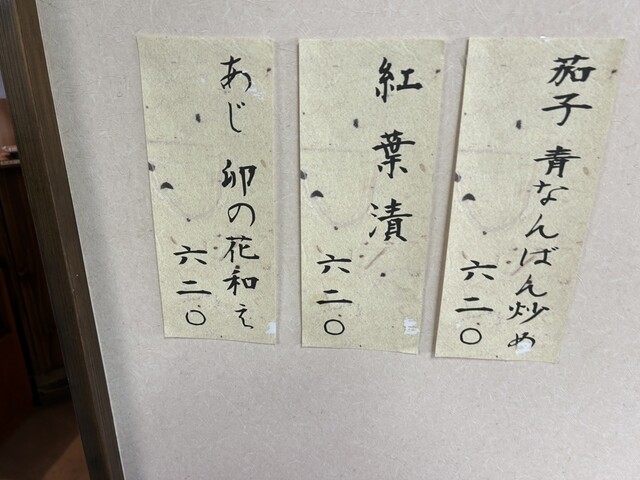 茄子 青なんばん炒め
六二〇
紅葉漬
六二〇
あじ 卯の花和え
六二〇